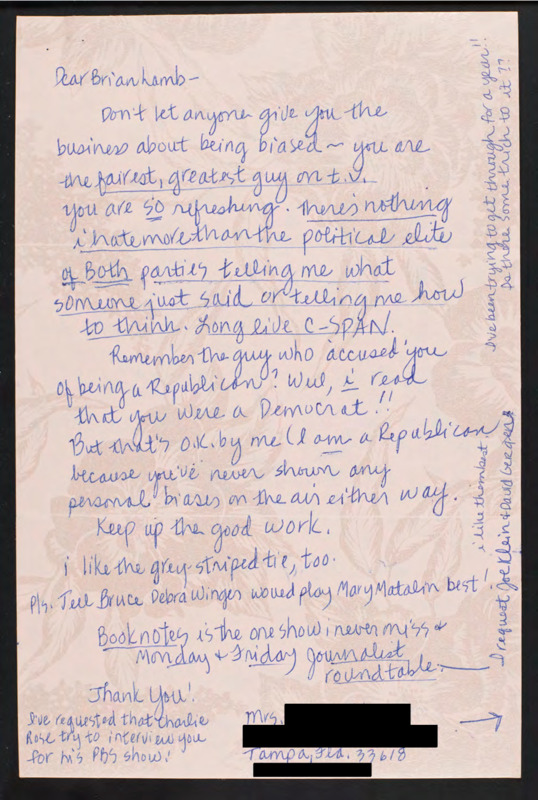 Dear Brian Lamb -
Don't let anyone give you the
business about being biased ~ you are
the fairest, greatest guy on t.v.
You are so refreshing. There's nothing
i hate more than the political elite
of Both parties telling me what
someone just said or telling me how
to think. Long live C-SPAN.
Remember the guy who "accused" you
of being a Republican? Well, i read
that you were a Democrat!!
But that's O.K. by me (I am a Republican)
because you've never shown any
personal biases on the air either way.
Keep up the good work.
i like the grey-striped tie, too.
P/s. Tell Bruce Debra Winger would play Mary Matalin best!
Booknotes is the one show i never miss &
Monday & Friday Journalist
roundtable.
Thank You!
I've requested that Charlie
Rose try to interview you
for his PBS show!
Mrs.
Tampa, Fla. 33618
I request Joe Klein & David Gergen
i like them best!
I've been trying to get through for a year!!
Is there some trick to it??